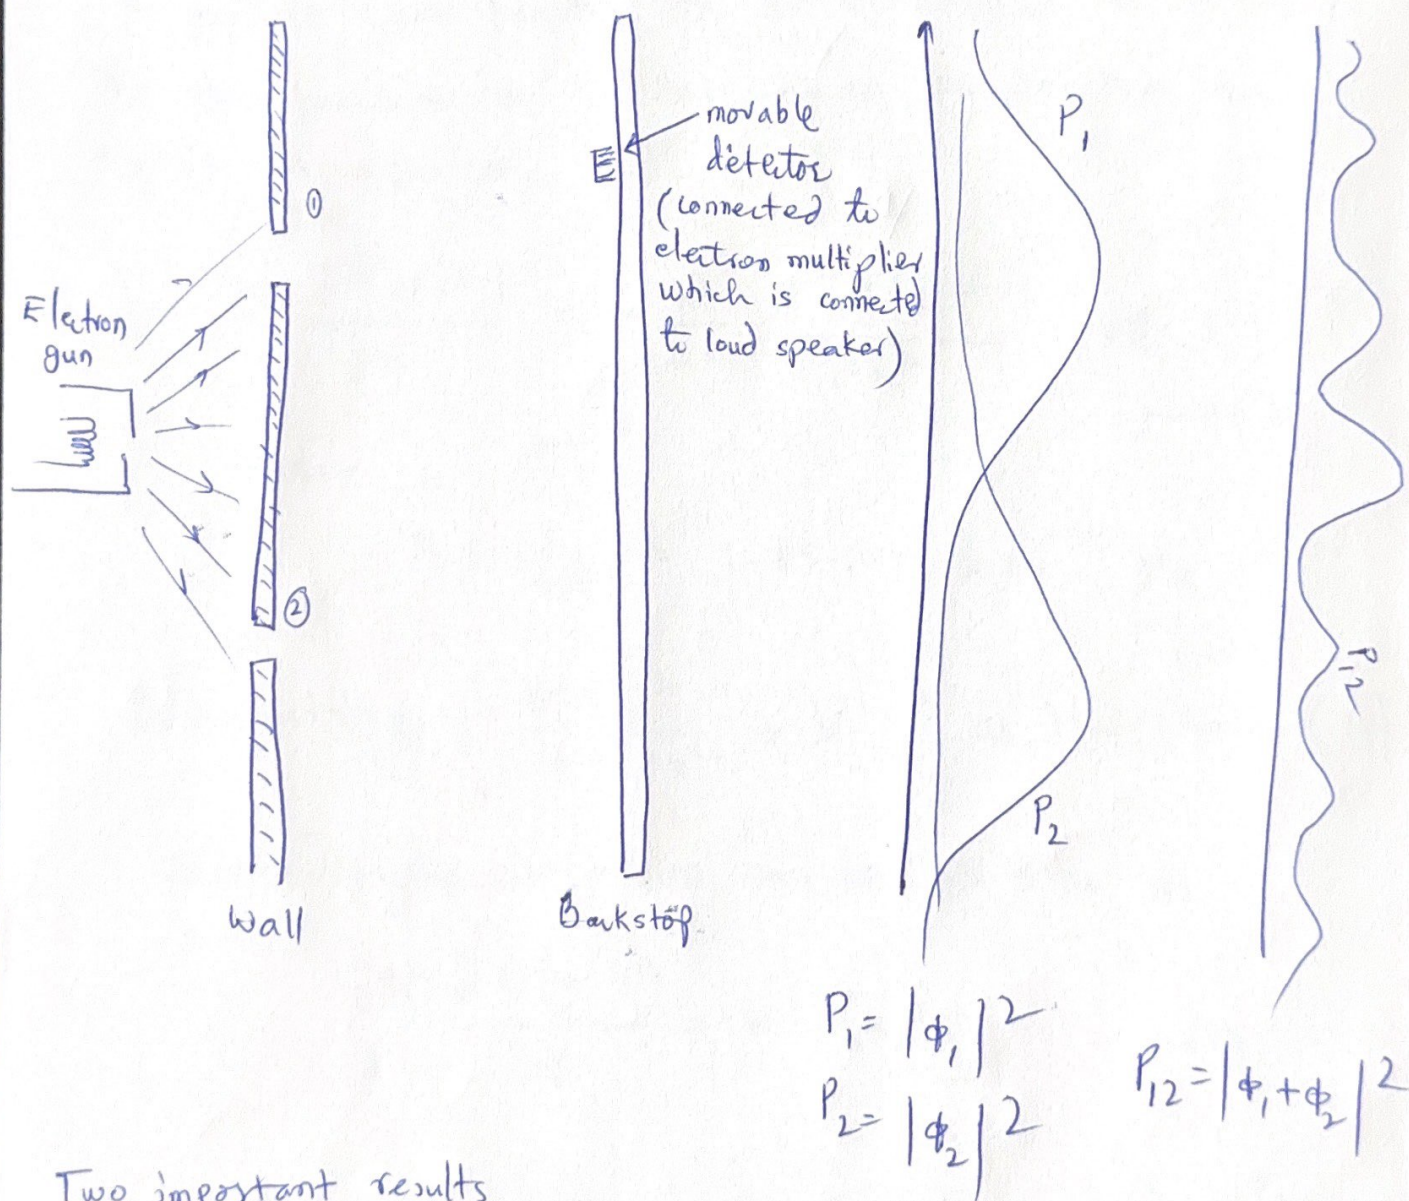 ①
Electron
gun
②
Wall
movable
detector
(connected to
electron multiplier
which is connected
to loud speaker)
Backstop
P₁
P₂
P₁₂
P₁ = |ϕ₁|²
P₂ = |ϕ₂|²
P₁₂ = |ϕ₁+ϕ₂|²
Two important results